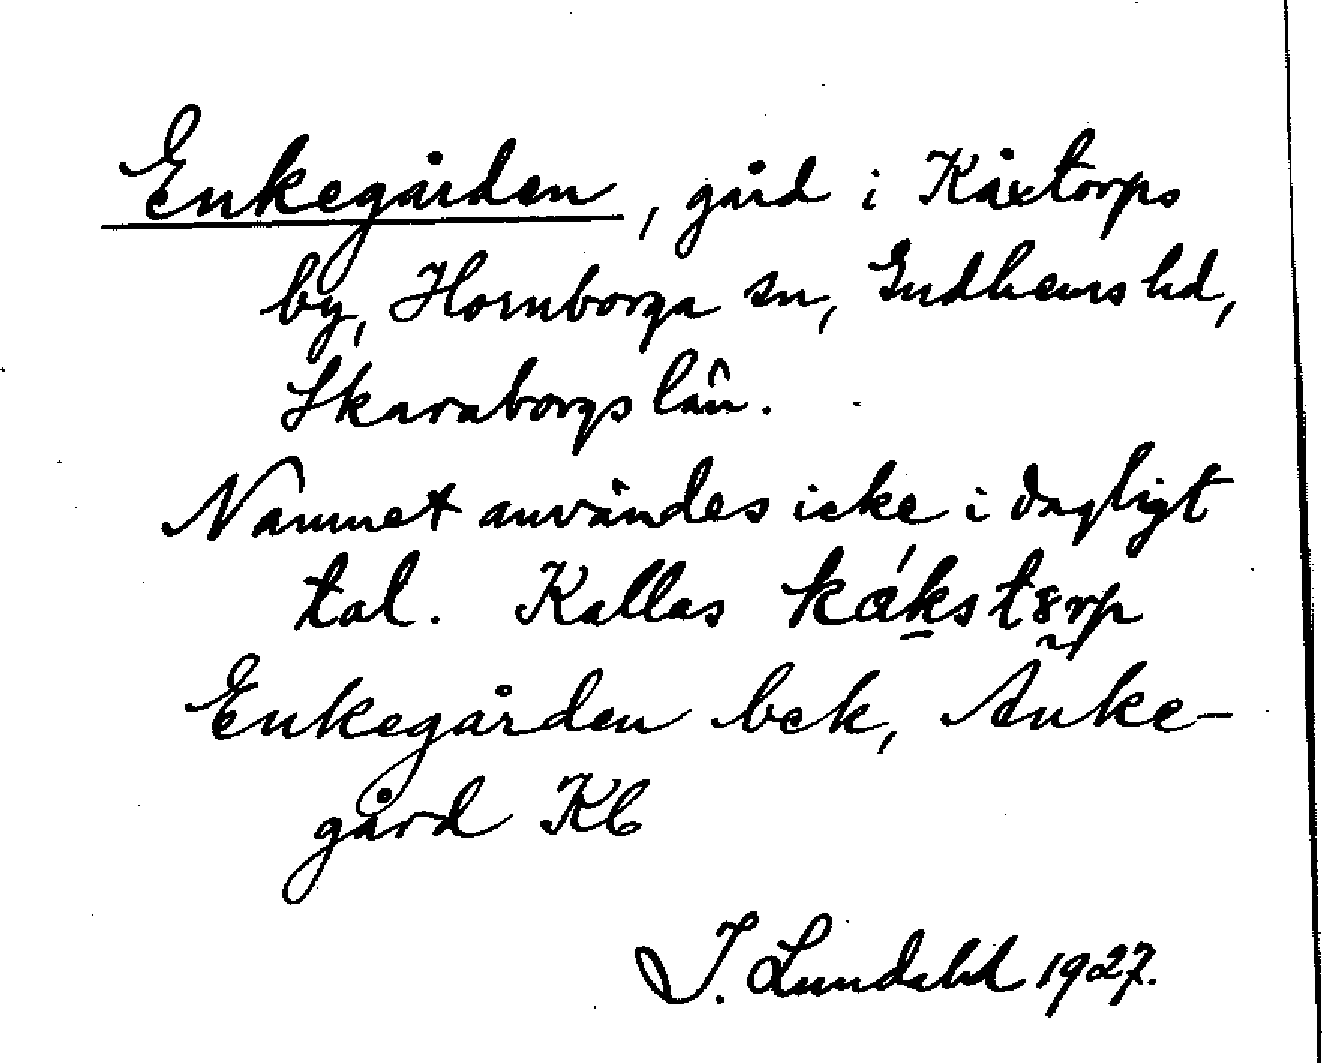 Enkegården, gård i Kåxtorps
by, Hornborga sn, Gudhems hd,
Skaraborgs län.
Namnet användes icke i dagligt
tal. Kallas
Enkegården bek, Änke-
gård Kb
I. Lundahl 1927.